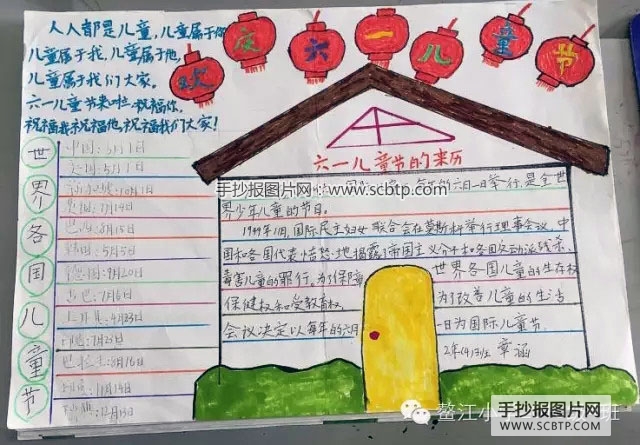 人人都是儿童,儿童属于你
儿童属于我,儿童属于他,
儿童属于我们大家。
六一儿童节来啦,祝福你,
祝福我祝福他,祝福我们大家!
欢庆六一儿童节
世界各国儿童节
中国:6月1日
6月1日
7月14日
巴西:8月15日
韩国:5月5日
德国:9月20日
古巴:7月6日
土耳其:4月23日
7月23日
巴拉圭:8月16日
11月14日
12月13日
六一儿童节的来历
六月一日举行,是全世
界少年儿童的节日。
1949年11月,国际民主妇女联合会在莫斯科举行理事会议,中
国和各国代表愤怒地揭露了帝国主义分子和各国反动派残杀、
毒害儿童的罪行,为了保障 世界各国儿童的生存权
保健权和受教育权, 为了改善儿童的生活
会议决定以每年的六月 一日为国际儿童节。
章涵
手抄报图片网
www.scbtp.com
手抄报图片网
www.scbtp.com
鳌江小
班
手抄报图片网
WWW.SCBTP.COM